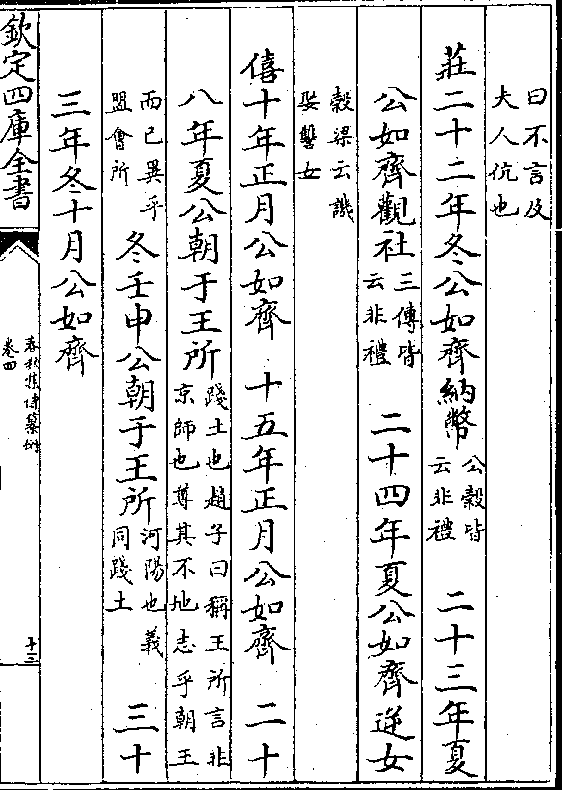 曰不言及
夫人伉也
莊二十二年冬公如齊納幣
公穀皆
云非禮
二十三年夏
公如齊觀社
三傳皆
云非禮
二十四年夏公如齊逆女
穀梁云譏
娶讐女
僖十年正月公如齊 十五年正月公如齊 二十
八年夏公朝于王所
踐土也趙子曰稱王所言非
京師也尊其不地志乎朝王
而已異乎
盟會所
冬壬申公朝于王所
河陽也義
同踐土
三十
三年冬十月公如齊
欽定四庫全書
春秋集傳纂例
卷四
十三